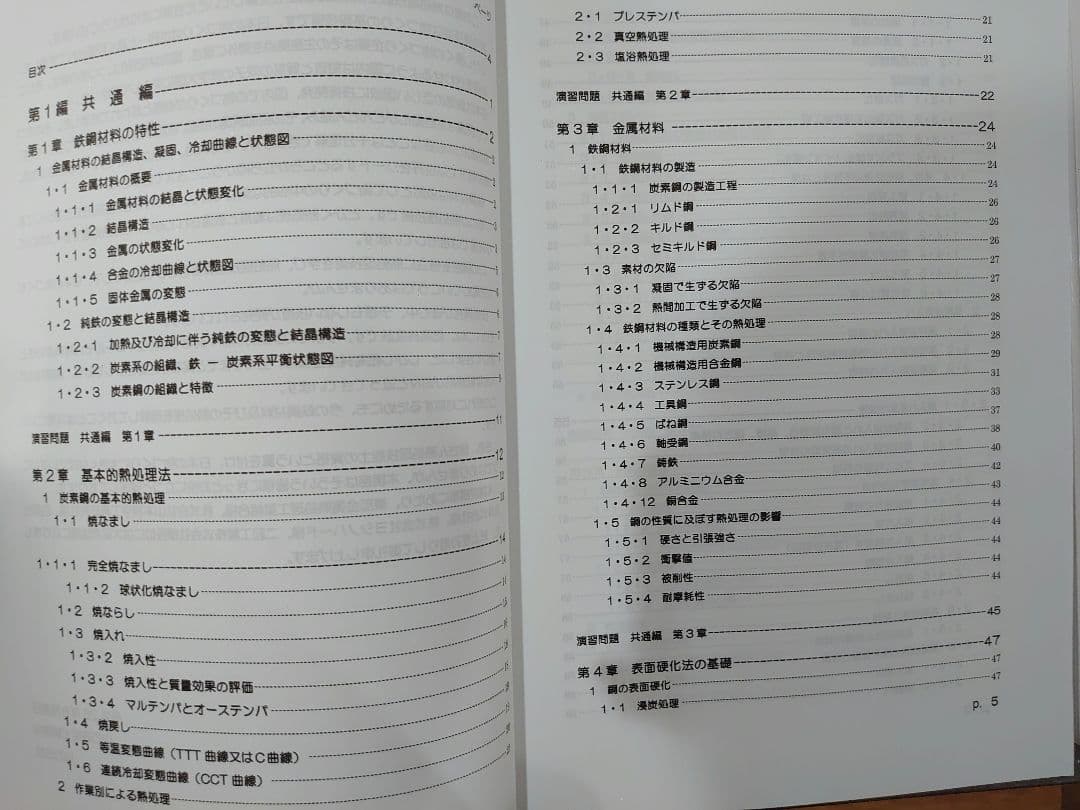 ページ
目次 4
第1編 共通編 1
第1章 鉄鋼材料の特性 2
1 金属材料の結晶構造、凝固、冷却曲線と状態図 2
1・1 金属材料の概要
1・1・1 金属材料の結晶と状態変化
1・1・2 結晶構造
1・1・3 金属の状態変化
1・1・4 合金の冷却曲線と状態図
1・1・5 固体金属の変態
1・2 純鉄の変態と結晶構造
1・2・1 加熱及び冷却に伴う純鉄の変態と結晶構造
1・2・2 炭素系の組織、鉄 ー 炭素系平衡状態図
1・2・3 炭素鋼の組織と特徴
演習問題 共通編 第1章 11
第2章 基本的熱処理法 12
1 炭素鋼の基本的熱処理 12
1・1 焼なまし 13
1・1・1 完全焼なまし 14
1・1・2 球状化焼なまし 14
1・2 焼ならし
1・3 焼入れ
1・3・2 焼入性
1・3・3 焼入性と質量効果の評価
1・3・4 マルテンパとオーステンパ
1・4 焼戻し
1・5 等温変態曲線（TTT 曲線又はC曲線）
1・6 連続冷却変態曲線（CCT 曲線）
2 作業別による熱処理
2・1 プレステンパ 21
2・2 真空熱処理 21
2・3 塩浴熱処理 21
演習問題 共通編 第2章 22
第3章 金属材料 24
1 鉄鋼材料 24
1・1 鉄鋼材料の製造 24
1・1・1 炭素鋼の製造工程 24
1・2・1 リムド鋼 26
1・2・2 キルド鋼 26
1・2・3 セミキルド鋼 26
1・3 素材の欠陥 27
1・3・1 凝固で生ずる欠陥 27
1・3・2 熱間加工で生ずる欠陥 28
1・4 鉄鋼材料の種類とその熱処理 28
1・4・1 機械構造用炭素鋼 28
1・4・2 機械構造用合金鋼 29
1・4・3 ステンレス鋼 31
1・4・4 工具鋼 33
1・4・5 ばね鋼 37
1・4・6 軸受鋼 38
1・4・7 鋳鉄 40
1・4・8 アルミニウム合金 42
1・4・12 銅合金 43
1・5 鋼の性質に及ぼす熱処理の影響 44
1・5・1 硬さと引張強さ 44
1・5・2 衝撃値 44
1・5・3 被削性 44
1・5・4 耐摩耗性 44
演習問題 共通編 第3章 45
第4章 表面硬化法の基礎 47
1 鋼の表面硬化 47
1・1 浸炭処理 47
p. 5